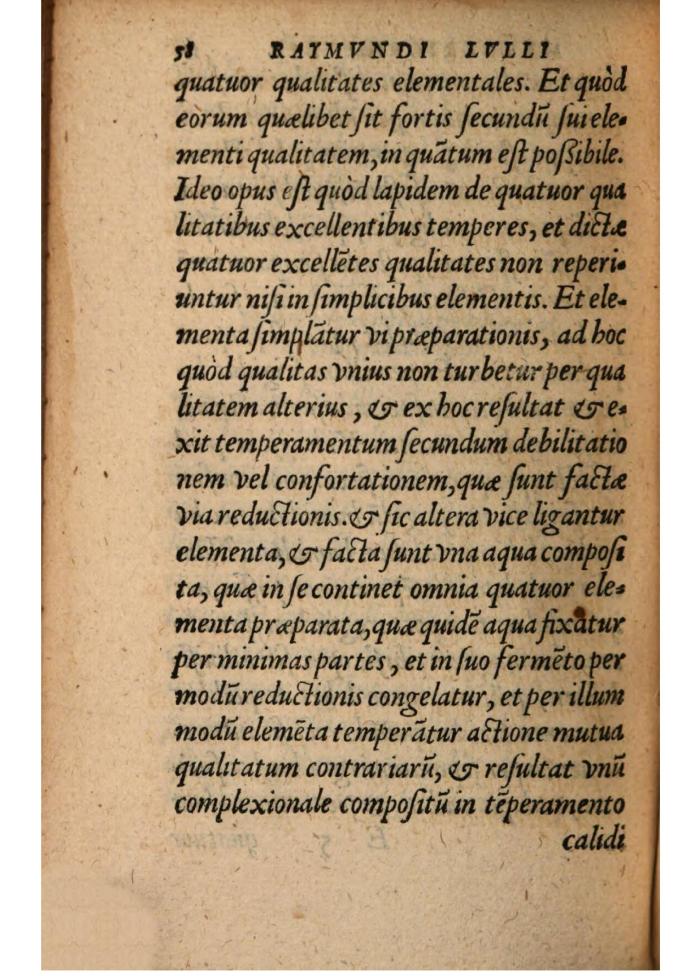 58 RAYMVNDI LVLLI
quatuor qualitates elementales. Et quòd
eorum quælibet ſit fortis ſecundū ſui ele-
menti qualitatem, in quātum eſt poſsibile.
Ideo opus eſt quòd lapidem de quatuor qua
litatibus excellentibus temperes, et dictæ
quatuor excellētes qualitates non reperi-
untur niſi in ſimplicibus elementis. Et ele-
menta ſimplātur vi præparationis, ad hoc
quòd qualitas vnius non turbetur per qua
litatem alterius, & ex hoc reſultat & e-
xit temperamentum ſecundum debilitatio
nem vel confortationem, quæ ſunt factæ
via reductionis. & ſic altera vice ligantur
elementa, & facta ſunt vna aqua compoſi
ta, quæ in ſe continet omnia quatuor ele-
menta præparata, quæ quidē aqua fixatur
per minimas partes, et in ſuo fermēto per
modū reductionis congelatur, et per illum
modū elemēta temperātur actione mutua
qualitatum contrariarū, & reſultat vnū
complexionale compoſitū in tēperamento
calidi